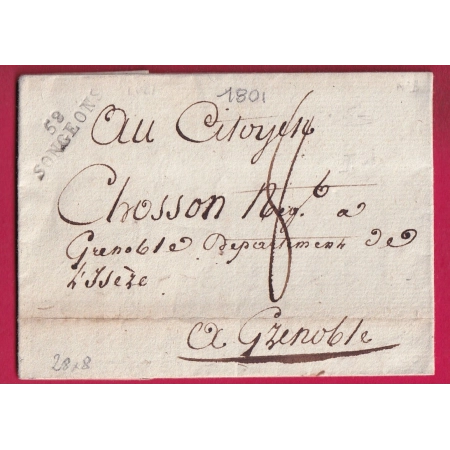 1801
58
SONGEONS
Au Citoyen
Chosson Neg.t a
Grenoble Departement de
L'Isère
8
a Grenoble
28x8